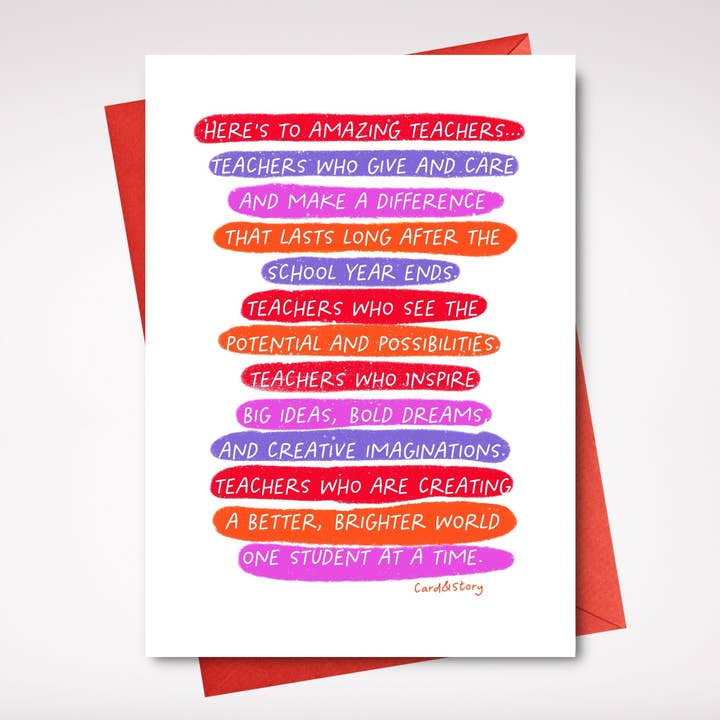 HERE'S TO AMAZING TEACHERS...
TEACHERS WHO GIVE AND CARE
AND MAKE A DIFFERENCE
THAT LASTS LONG AFTER THE
SCHOOL YEAR ENDS.
TEACHERS WHO SEE THE
POTENTIAL AND POSSIBILITIES.
TEACHERS WHO INSPIRE
BIG IDEAS, BOLD DREAMS,
AND CREATIVE IMAGINATIONS.
TEACHERS WHO ARE CREATING
A BETTER, BRIGHTER WORLD
ONE STUDENT AT A TIME.
Card&Story